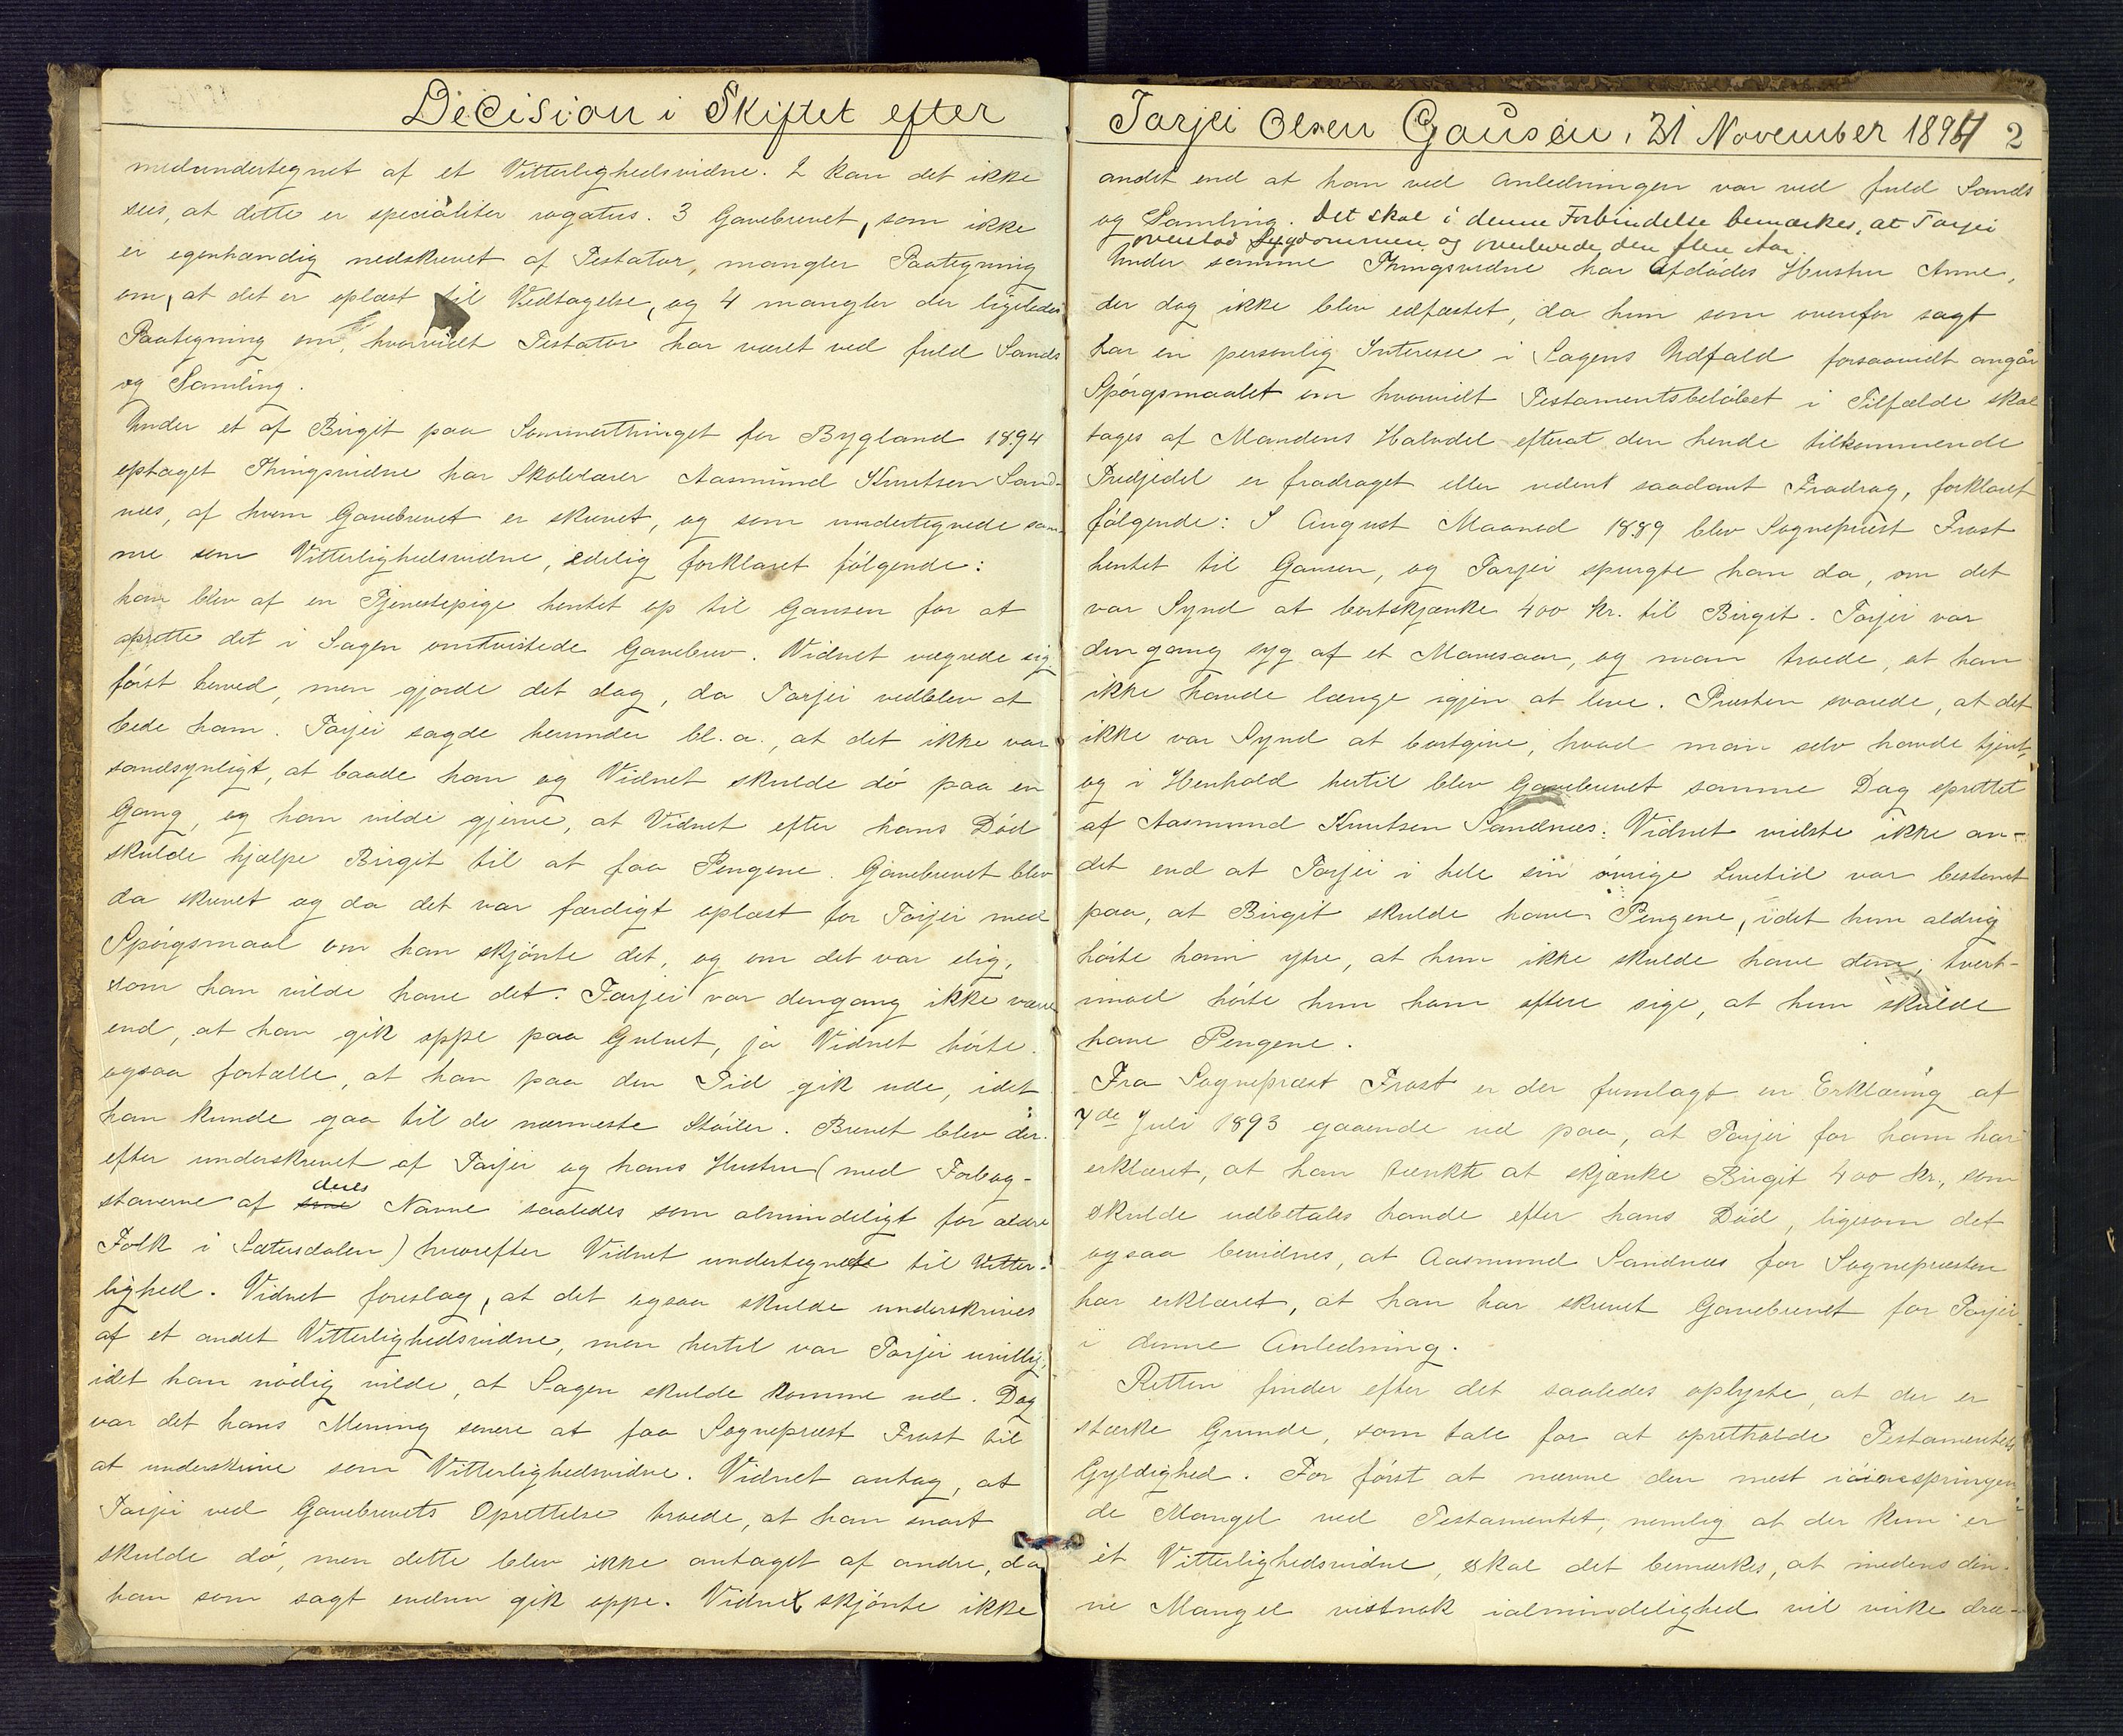 Decision i Skiftet efter
medundertegnet af et Vitterlighedsvidne. 2 kan det ikke
sees, at dette er specialiter rogatus. 3 Gavebrevet, som ikke
er egenhændig nedskrevet af Testator, mangler Paategning
om, at det er oplæst til Vedtagelse, og 4 mangler der ligeledes
Paategning om, hvorvidt Testator har været ved fuld Sands
og Samling.
Under et af Birgit paa Sommerthinget for Bygland 1894
optaget Thingsvidne har Skolelærer Aasmund Knutsen Sand-
næs, af hvem Gavebrevet er skrevet, og som undertegnede sam-
me som Vitterlighedsvidne, edelig forklaret følgende:
han blev af en Tjenestepige hentet op til Gausen for at
oprette det i Sagen omtvistede Gavebrev. Vidnet vægrede sig
først herved, men gjorde det dog, da Tarjei vedblev at
bede ham. Tarjei sagde herunder bl. a., at det ikke var
sandsynligt, at baade han og Vidnet skulde dö paa en
Gang, og han vilde gjerne, at Vidnet efter hans Död
skulde hjælpe Birgit til at faa Pengene. Gavebrevet blev
da skrevet og da det var færdigt oplæst for Tarjei med
Spörgsmaal om han skjönte det, og om det var slig,
som han vilde have det. Tarjei var dengang ikke værre
end, at han gik oppe paa Gulvet, ja Vidnet hörte
ogsaa fortælle, at han paa den Tid gik ude, idet
han kunde gaa til de nærmeste Stöiler. Brevet blev der-
efter underskrevet af Tarjei og hans Hustru (med Forbog-
staverne af sine deres Navne saaledes som almindeligt for ældre
Folk i Sætersdalen) hvorefter Vidnet undertegnede til Vitter-
lighed. Vidnet foreslog, at det ogsaa skulde underskrives
af et andet Vitterlighedsvidne, men hertil var Tarjei uvillig,
idet han nödig vilde, at Sagen skulde komme ud. Dog
var det hans Mening senere at faa Sognepræst Frost til
at underskrive som Vitterlighedsvidne. Vidnet antog, at
Tarjei ved Gavebrevets Oprettelse troede, at han snart
skulde dö, men dette blev ikke antaget af andre, da
han som sagt endnu gik oppe. Vidnet skjönte ikke
Tarjei Olsen Gausen, 21 November 1894 2
andet end at han ved Anledningen var ved fuld Sands
og Samling. Det skal i denne Forbindelse bemærkes, at Tarjei
overstod Sygdommen og overlevede den flere Aar.
Under samme Thingsvidne har Afdødes Hustru Anne,
der dog ikke blev edfæstet, da hun som ovenfor sagt
har en personlig Interesse i Sagens Udfald forsaavidt angår
Spörgsmaalet om hvorvidt Testamentsbelöbet i Tilfælde skal
tages af Mandens Halvdel efterat den hende tilkommende
Tredjedel er fradraget eller uden saadant Fradrag, forklaret
fölgende: I August Maaned 1889 blev Sognepræst Frost
hentet til Gausen, og Tarjei spurgte han da, om det
var Synd at bortskjænke 400 Kr. til Birgit. Tarjei var
dengang syg af et Mavesaar, og man troede, at han
ikke havde længe igjen at leve. Præsten svarede, at det
ikke var Synd at bortgive, hvad man selv havde tjent,
og i Henhold hertil blev Gavebrevet samme Dag oprettet
af Aasmund Knutsen Sandnæs. Vidnet vidste ikke an-
det end at Tarjei i hele sin övrige Levetid var bestemt
paa, at Birgit skulde have Pengene, idet hun aldrig
hörte ham ytre, at hun ikke skulde have dem, tvert-
imod hörte hun ham oftere sige, at hun skulde
have Pengene.
Fra Sognepræst Frost er der fremlagt en Erklæring af
7de Juli 1893 gaaende ud paa, at Tarjei for ham har
erklæret, at han tænkte at skjænke Birgit 400 kr., som
skulde udbetales hende efter hans Död, ligesom det
ogsaa bevidnes, at Aasmund Sandnæs for Sognepræsten
har erklæret, at han har skrevet Gavebrevet for Tarjei
i denne Anledning.
Retten finder efter det saaledes oplyste, at der er
stærke Grunde, som tale for at opretholde Testamentets
Gyldighed. For först at nævne den mest iöinespringen-
de Mangel ved Testamentet, nemlig at der kun er
ét Vitterlighedsvidne, skal det bemærkes, at medens den-
ne Mangel vistnok ialmindelighed vil virke dræ-